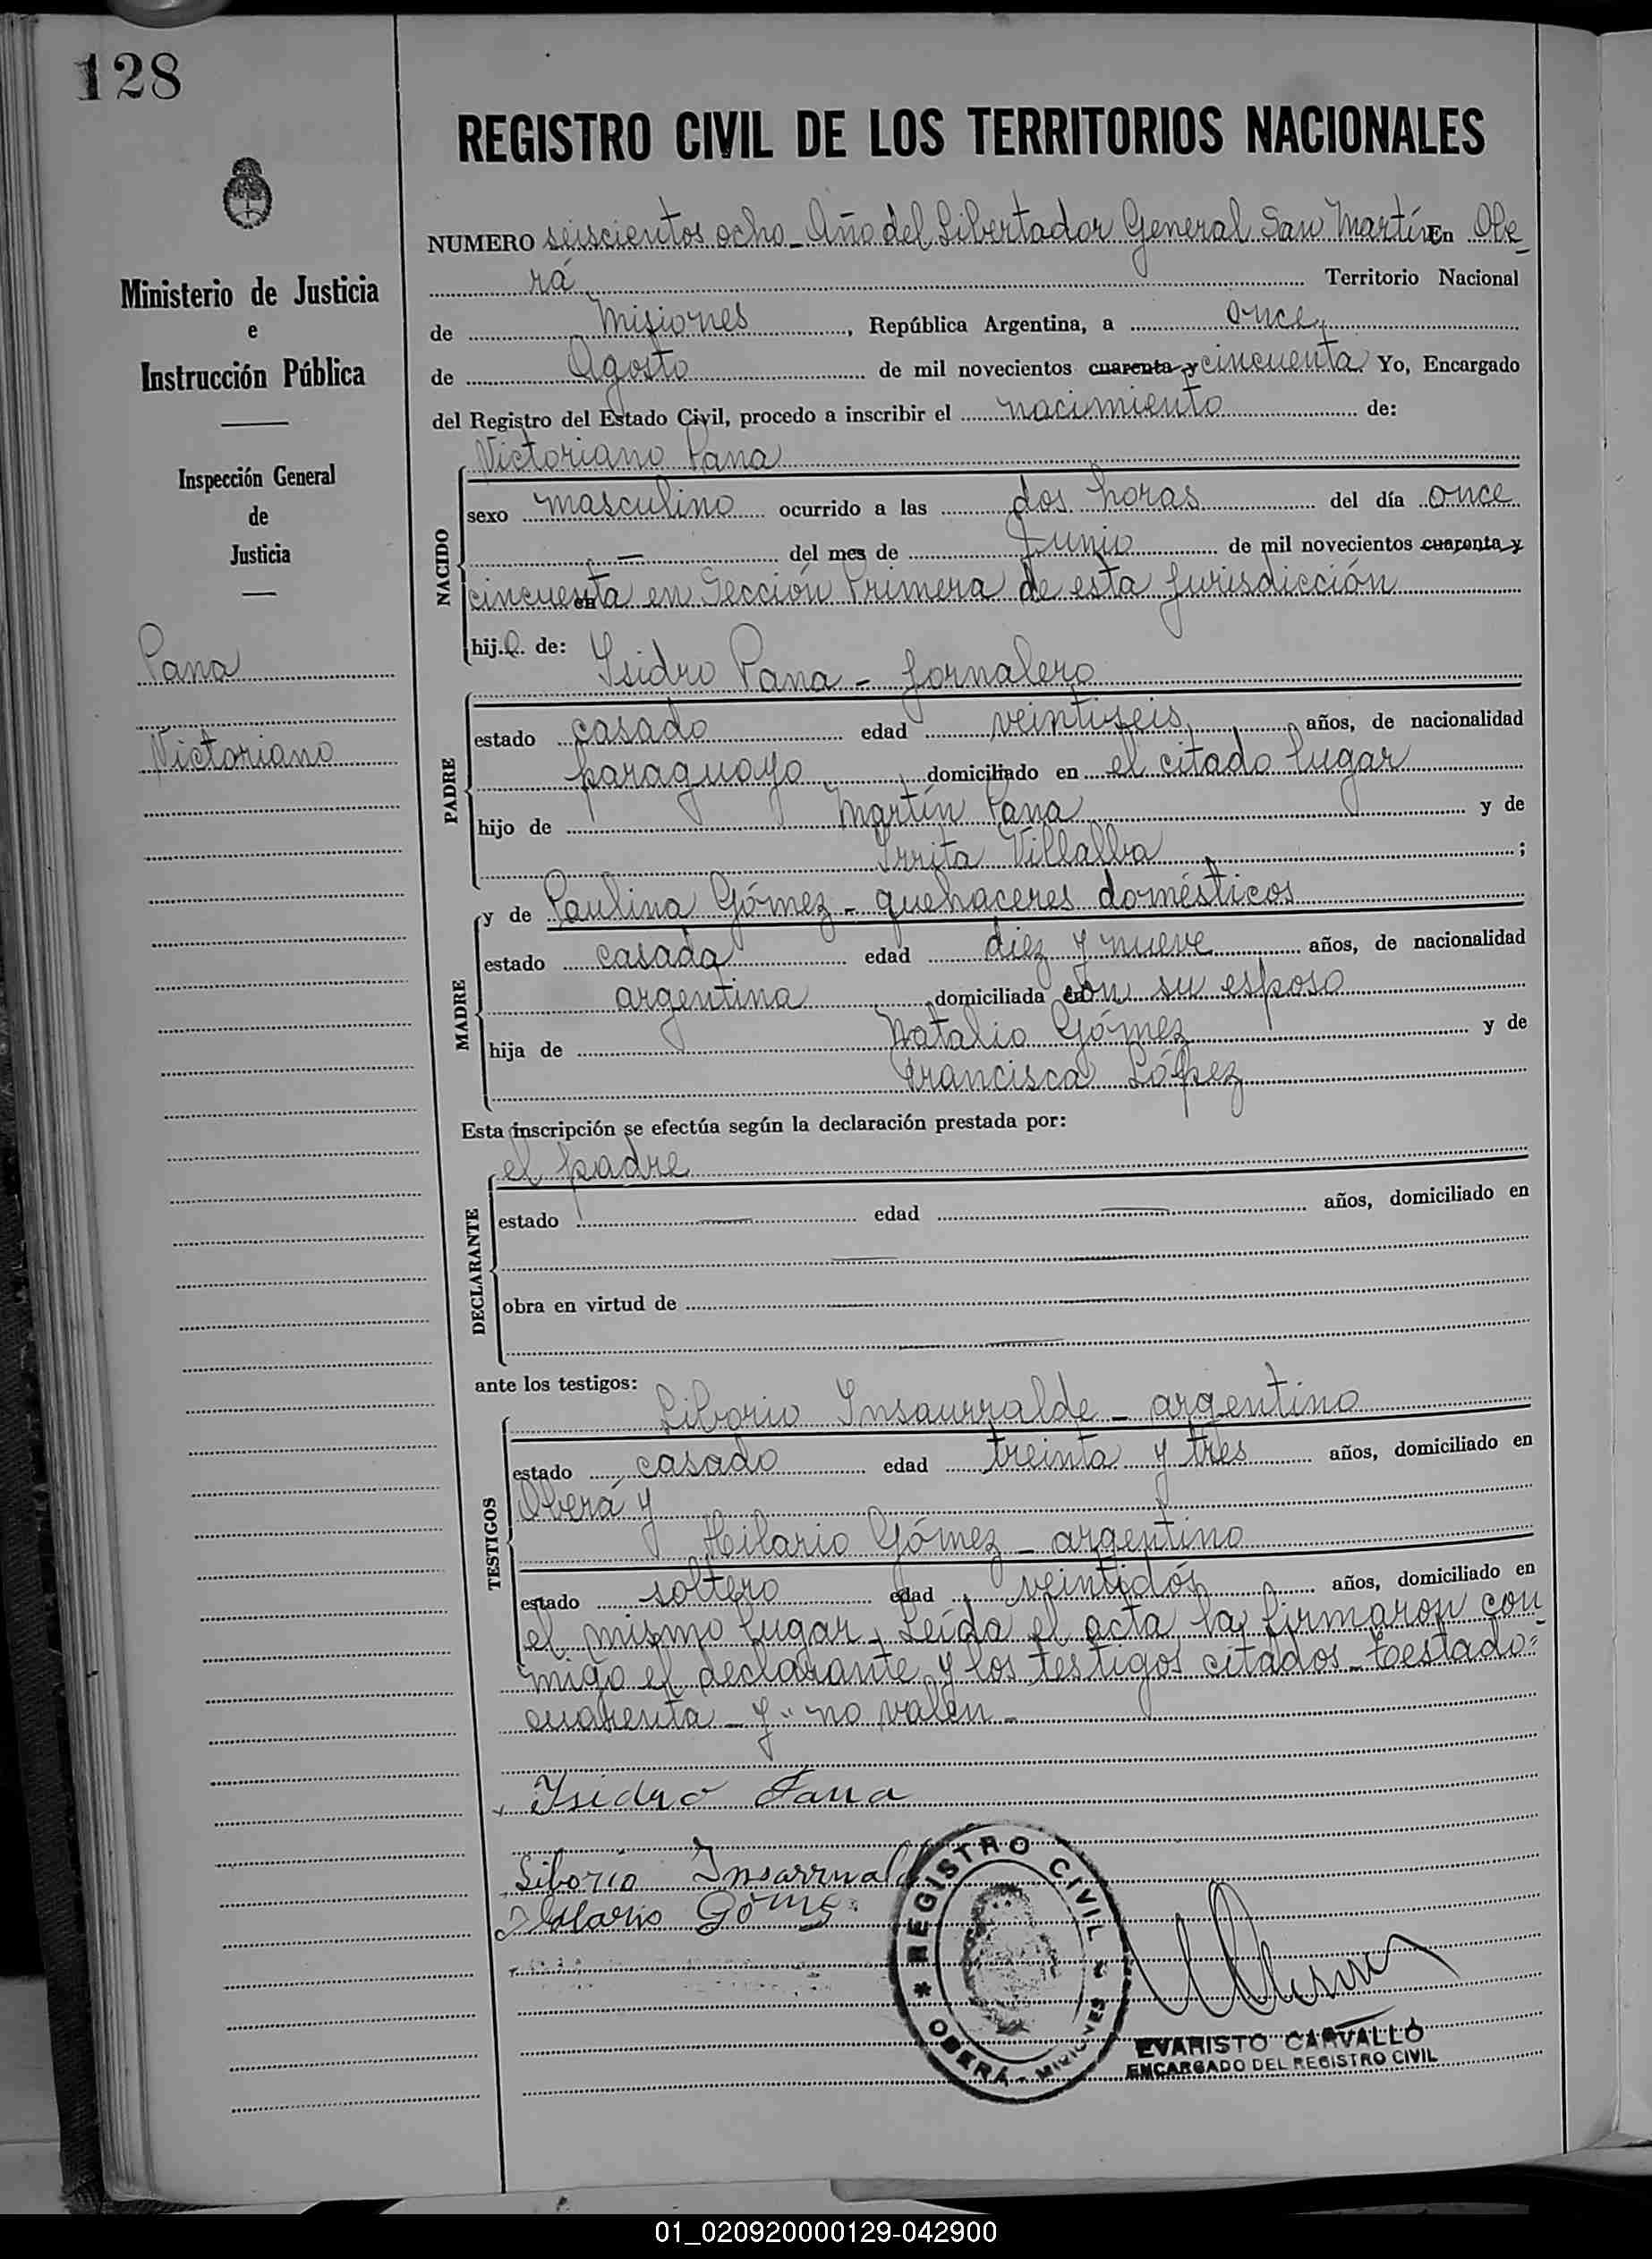 128
REGISTRO CIVIL DE LOS TERRITORIOS NACIONALES
NUMERO seiscientos ocho - Año del Libertador General San Martín En Obe-
rá Territorio Nacional
de Misiones, República Argentina, a once
de Agosto de mil novecientos cuarenta y cincuenta Yo, Encargado
del Registro del Estado Civil, procedo a inscribir el nacimiento de:
Victoriano Pana
NACIDO
sexo masculino ocurrido a las dos horas del día once
— del mes de Junio de mil novecientos cuarenta y
cincuenta en Sección Primera de esta jurisdicción
hijo de: Isidro Pana - jornalero
PADRE
estado casado edad veintiseis años, de nacionalidad
paraguayo domiciliado en el citado lugar
hijo de Martín Pana y de
Villalba ;
MADRE
y de Paulina Gómez - quehaceres domésticos
estado casada edad diez y nueve años, de nacionalidad
argentina domiciliada con su esposo
hija de Natalio Gómez y de
Francisca López
Esta inscripción se efectúa según la declaración prestada por:
el padre
DECLARANTE
estado — edad — años, domiciliado en
obra en virtud de
ante los testigos:
Liborio Insaurralde - argentino
TESTIGOS
estado casado edad treinta y tres años, domiciliado en
Oberá y
Hilario Gómez - argentino
estado soltero edad veintidós años, domiciliado en
el mismo lugar, Leída el acta la firmaron con-
migo el declarante y los testigos citados - Testado:
cuarenta - y" no valen -
Isidro Pana
Liborio Insarruald
Hilario Gómez
REGISTRO CIVIL
* OBERÁ - MISIONES
EVARISTO CARVALLO
ENCARGADO DEL REGISTRO CIVIL
Ministerio de Justicia
e
Instrucción Pública
Inspección General
de
Justicia
Pana
Victoriano
01_020920000129-042900